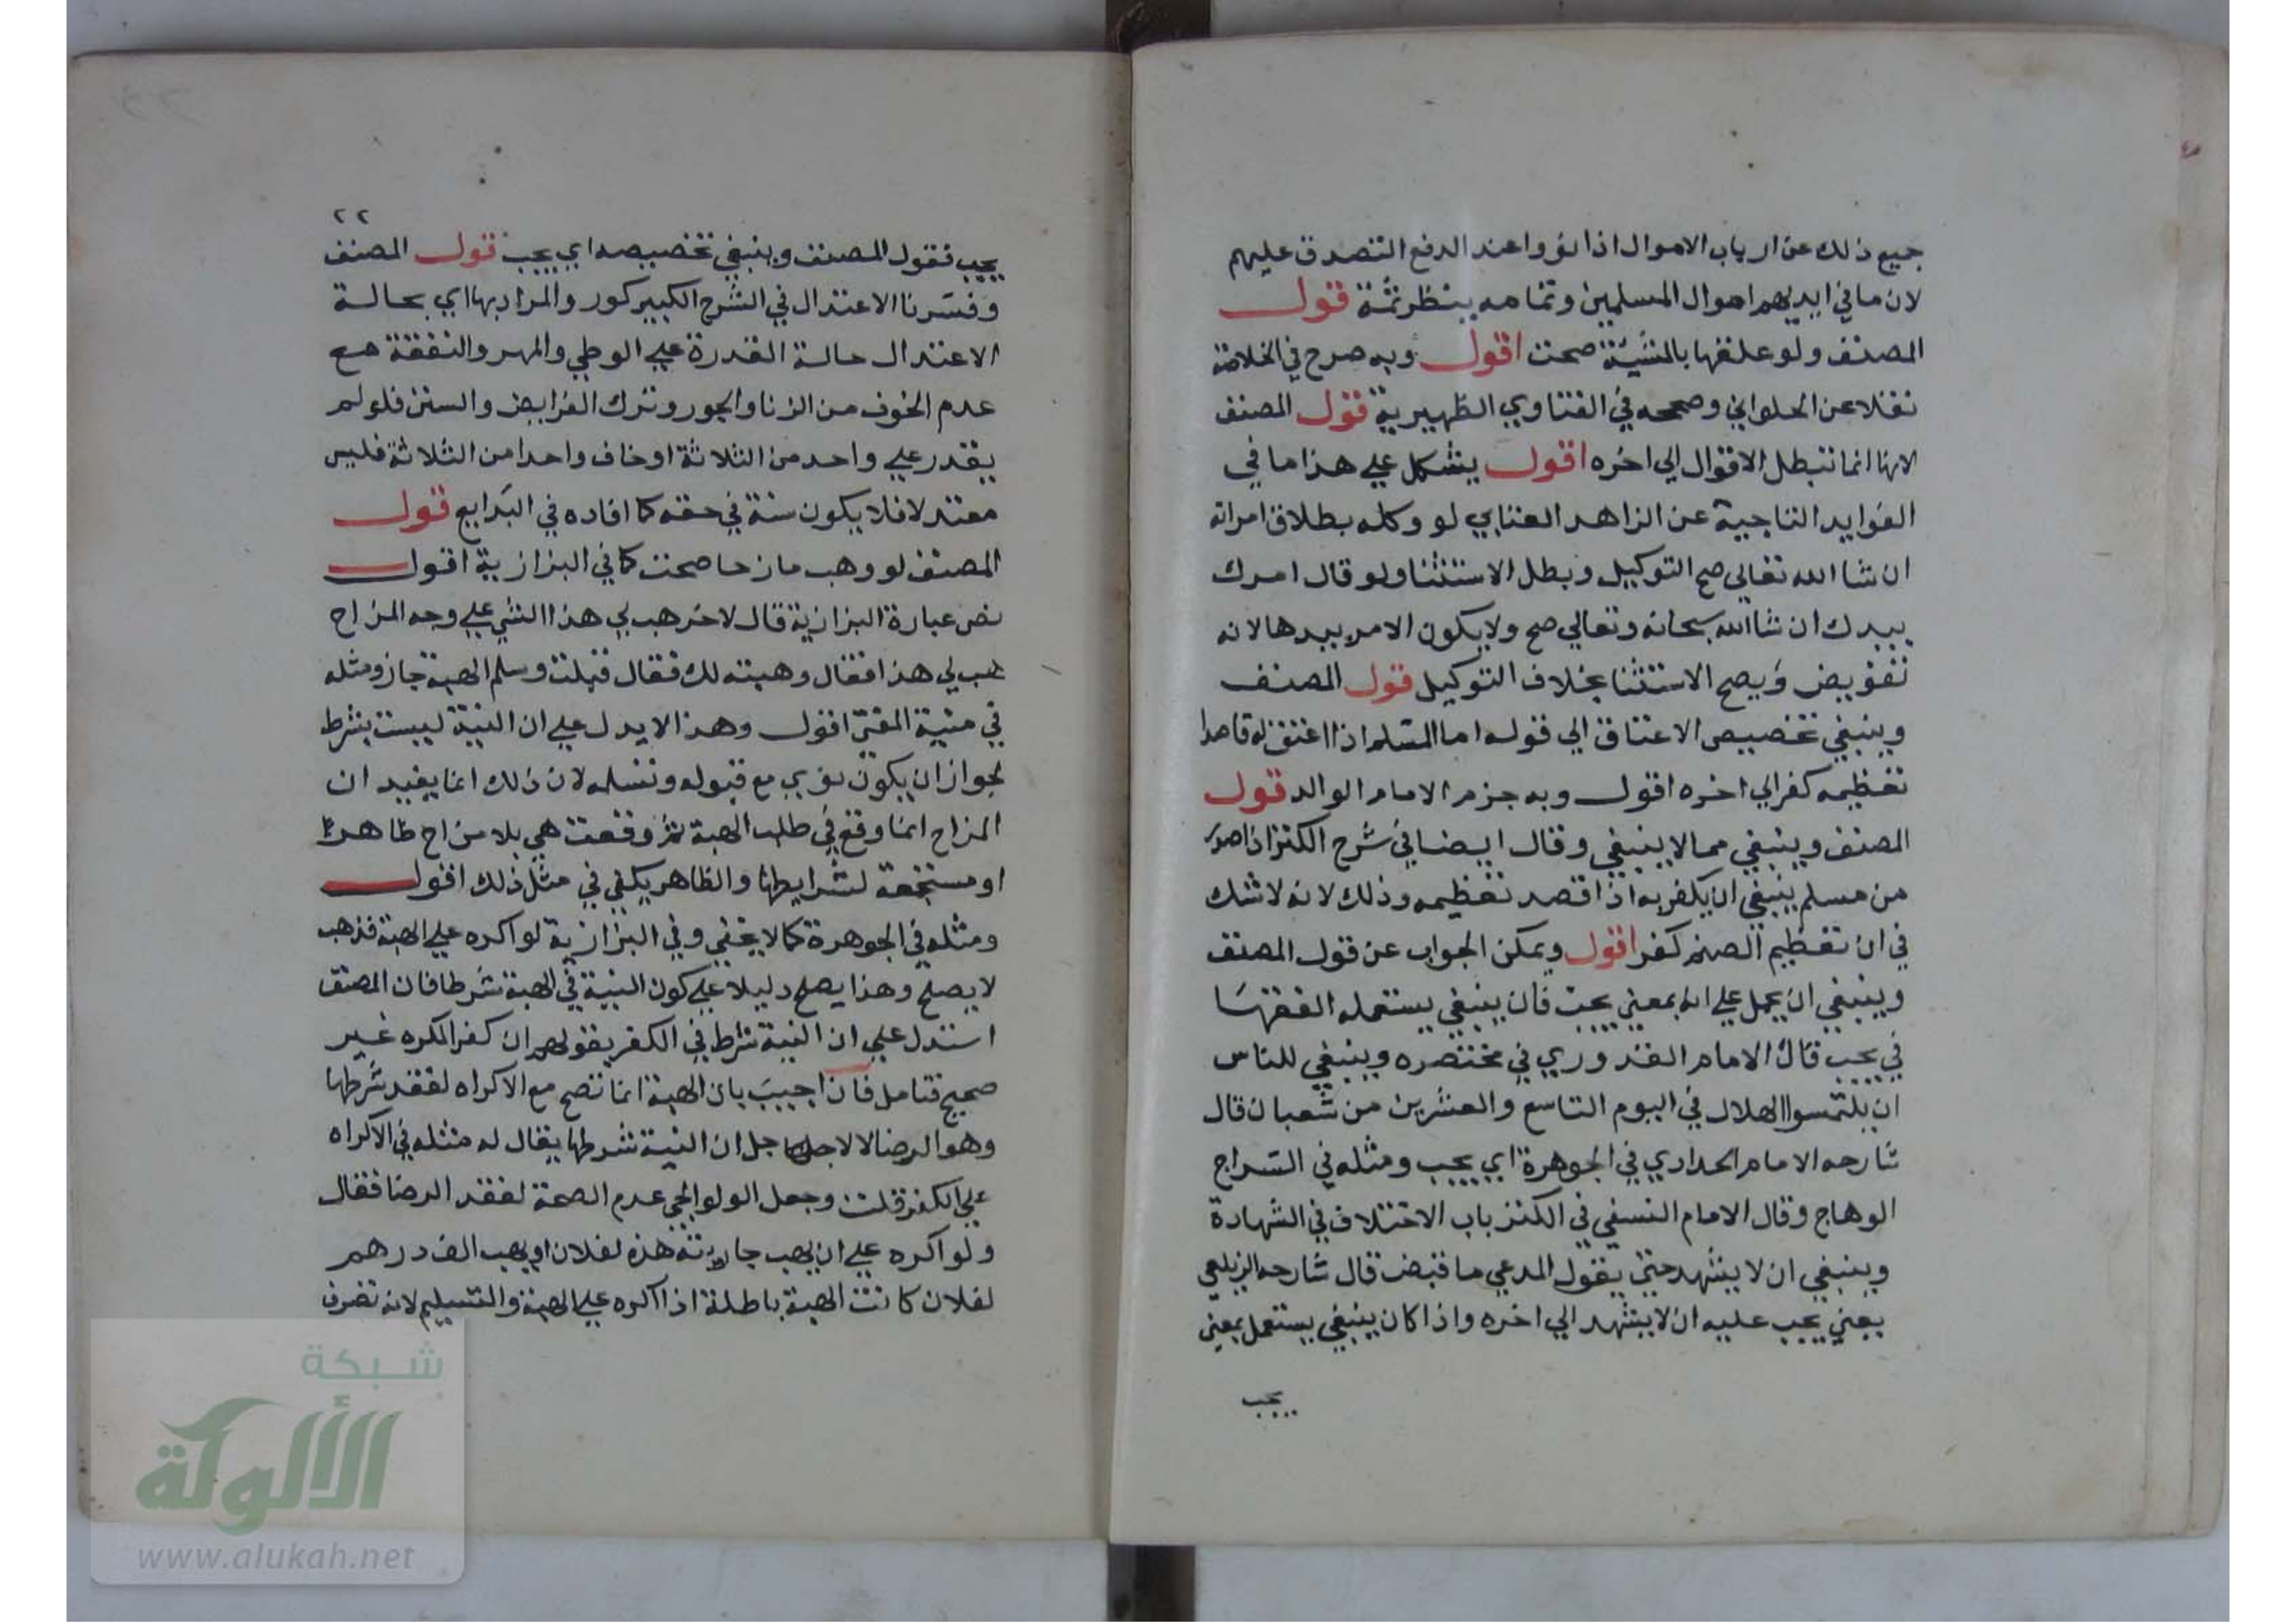 جميع ذلك عن ارباب الاموال اذا نووا عند الدفع التصدق عليهم
لان ما في ايديهم اموال المسلمين وتمامه ينظر ثمة قول
المصنف ولو علقها بالمشيئة صحت اقول وبه صرح في الخلاصة
نقلا عن الحلواني وصححه في الفتاوي الظهيرية قول المصنف
لانها انما تبطل الاقوال الي اخره اقول يشكل علي هذا ما في
الفوايد التاجية عن الزاهد العتابي لو وكله بطلاق امراته
ان شا الله تعالي صح التوكيل وبطل الاستثنا ولو قال امرك
بيدك ان شا الله سبحانه وتعالي صح ولا يكون الامر بيدها لانه
تفويض ويصح الاستثنا بخلاف التوكيل قول المصنف
وينبغي تخصيص الاعتاق الي قوله اما المسلم اذا اعتق له قاصدا
تعظيمه كفر الي اخره اقول وبه جزم الامام الوالد قول
المصنف وينبغي مما لا ينبغي وقال ايضا في شرح الكنز اذا صدر
من مسلم ينبغي ان يكفر به اذا قصد تعظيمه وذلك لانه لا شك
في ان تعظيم الصنم كفر اقول ويمكن الجواب عن قول المصنف
وينبغي ان يحمل علي انه بمعني يجب فان ينبغي يستعمله الفقها
في يجب قال الامام القدوري في مختصره وينبغي للناس
ان يلتمسوا الهلال في اليوم التاسع والعشرين من شعبان قال
شارحه الامام الحدادي في الجوهرة اي يجب ومثله في السراج
الوهاج وقال الامام النسفي في الكنز باب الاختلاف في الشهادة
وينبغي ان لا يشهد حتي يقول المدعي ما قبض قال شارحه الزيلعي
يعني يجب عليه ان لا يشهد الي اخره واذا كان ينبغي يستعمل بمعني
يجب
٢٢
يجب فقول المصنف وينبغي تخصيصه اي يجب قول المصنف
وفسرنا الاعتدال في الشرح الكبير كور والمراد بها اي بحالة
الاعتدال حالة القدرة علي الوطي والمهر والنفقة مع
عدم الخوف من الزنا والجور وترك الفرايض والسنن فلو لم
يقدر علي واحد من الثلاثة او خاف واحدا من الثلاثة فليس
معتدلا فلا يكون سنة في حقه كما افاده في البدايع قول
المصنف لو وهب مازحا صحت كما في البزازية اقول
نص عبارة البزازية قال لاخر هب لي هذا الشي علي وجه المزاح
هب لي هذا فقال وهبته لك فقال قبلت وسلم الهبة جاز ومثله
في منية المفتي اقول وهذا لا يدل علي ان النية ليست بشرط
لجواز ان يكون نوي مع قبوله وتسلمه لان ذلك انما يفيد ان
المزاح انما وقع في طلب الهبة ثم وقعت هي بلا مزاح ظاهرا
او مستجمعة لشرايطها والظاهر يكفي في مثل ذلك اقول
ومثله في الجوهرة كما لا يخفي وفي البزازية لو اكره علي الهبة فذهب
لا يصلح وهذا يصلح دليلا علي كون النية في الهبة شرطا فان المصنف
استدل علي ان النية شرط في الكفر بقولهم ان كفر المكره غير
صحيح فتامل فان اجيب بان الهبة انما تصح مع الاكراه لفقد شرطها
وهو الرضا لا لاجل ان النية شرطها يقال له مثله في الاكراه
علي الكفر قلت وجعل الولوالجي عدم الصحة لفقد الرضا فقال
ولو اكره علي ان يهب جاريته هذه لفلان او يهب الف درهم
لفلان كانت الهبة باطلة اذا اكره علي الهبة والتسليم لانه تصرف
شبكة
الألوكة
www.alukah.net